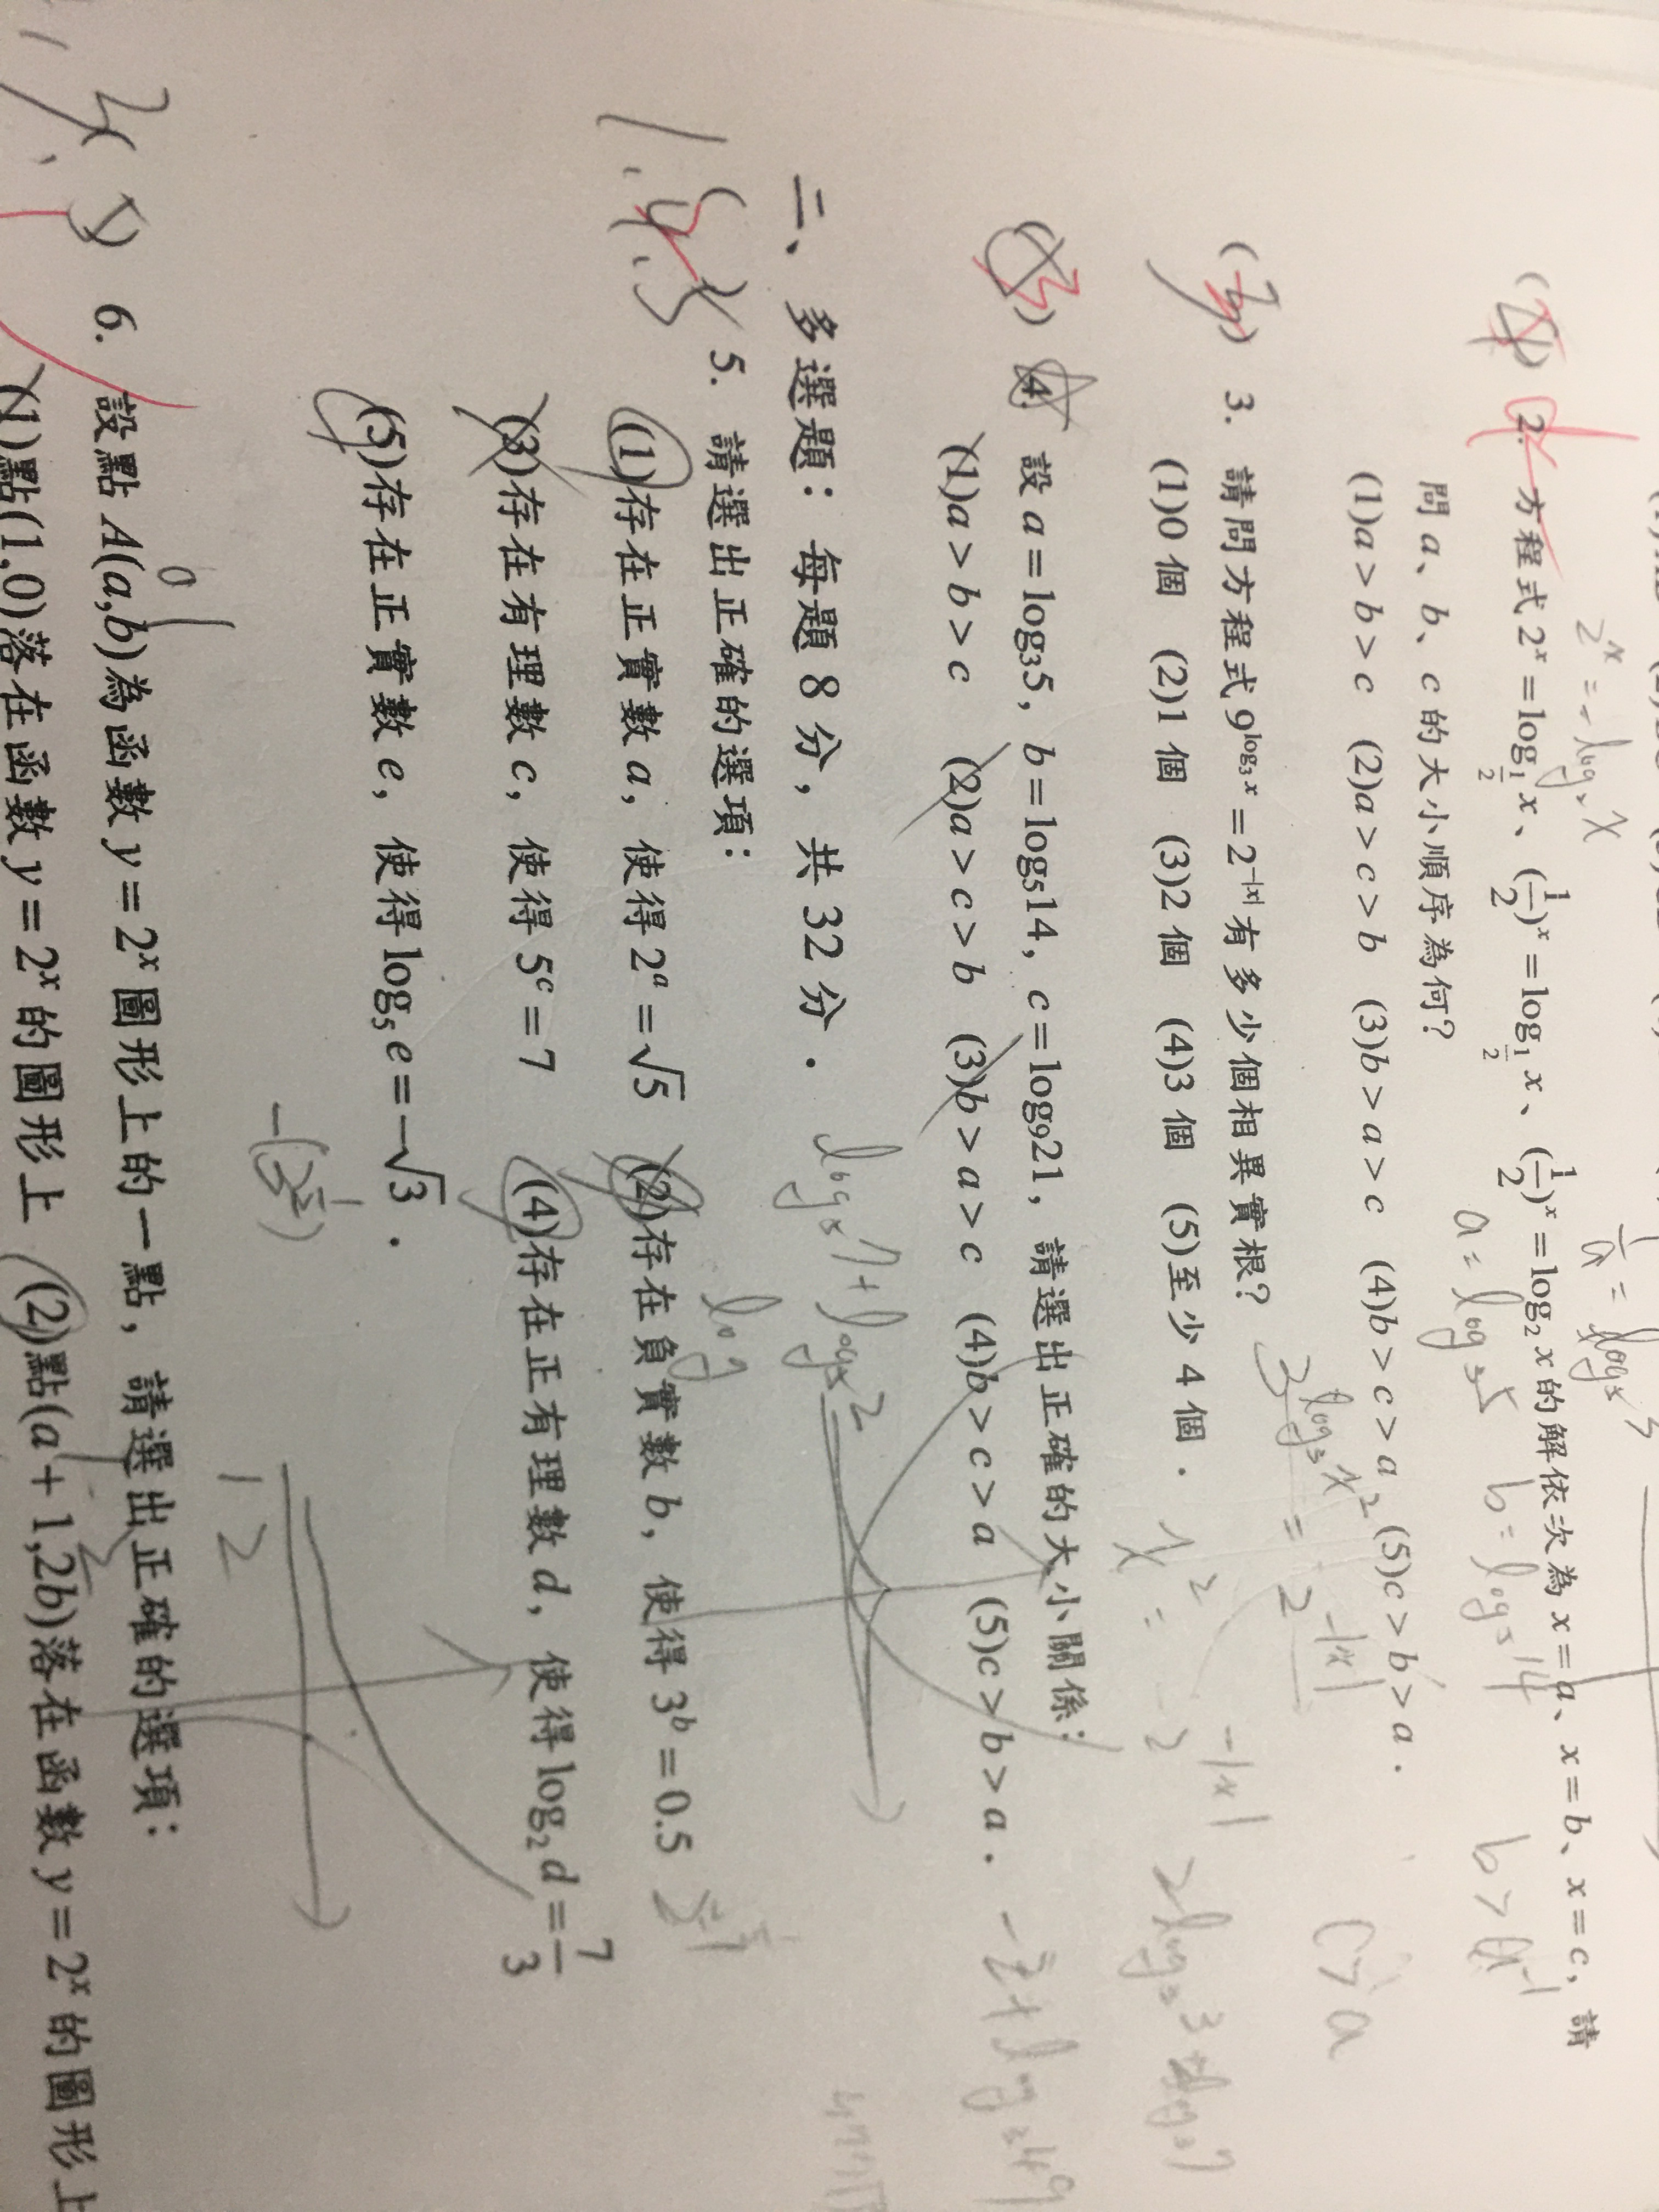 2. 方程式 2^x = log_{1/2} x、(1/2)^x = log_{1/2} x、(1/2)^x = log_2 x 的解依次為 x = a、x = b、x = c，請
問 a、b、c 的大小順序為何？
(1)a > b > c (2)a > c > b (3)b > a > c (4)b > c > a (5)c > b > a．
3. 請問方程式 9^{log_3 x} = 2^{-|x|} 有多少個相異實根？
(1)0 個 (2)1 個 (3)2 個 (4)3 個 (5)至少 4 個．
4. 設 a = log_3 5，b = log_5 14，c = log_9 21，請選出正確的大小關係：
(1)a > b > c (2)a > c > b (3)b > a > c (4)b > c > a (5)c > b > a．
二、多選題：每題 8 分，共 32 分．
1.4.5
5. 請選出正確的選項：
(1)存在正實數 a，使得 2^a = √5 (2)存在負實數 b，使得 3^b = 0.5
(3)存在有理數 c，使得 5^c = 7 (4)存在正有理數 d，使得 log_2 d = 7/3
(5)存在正實數 e，使得 log_5 e = -√3．
6. 設點 A(a,b)為函數 y = 2^x 圖形上的一點，請選出正確的選項：
(1)點(1,0)落在函數 y = 2^x 的圖形上 (2)點(a + 1,2b)落在函數 y = 2^x 的圖形上
2^x = -log_2 x
a = log_3 5
b = log_5 14
3^{log_3 x^2} = 2^{-|x|}
x^2 = 2^{-|x|}
c > a
log_5 7 + log_5 2
log
0 1
1 2